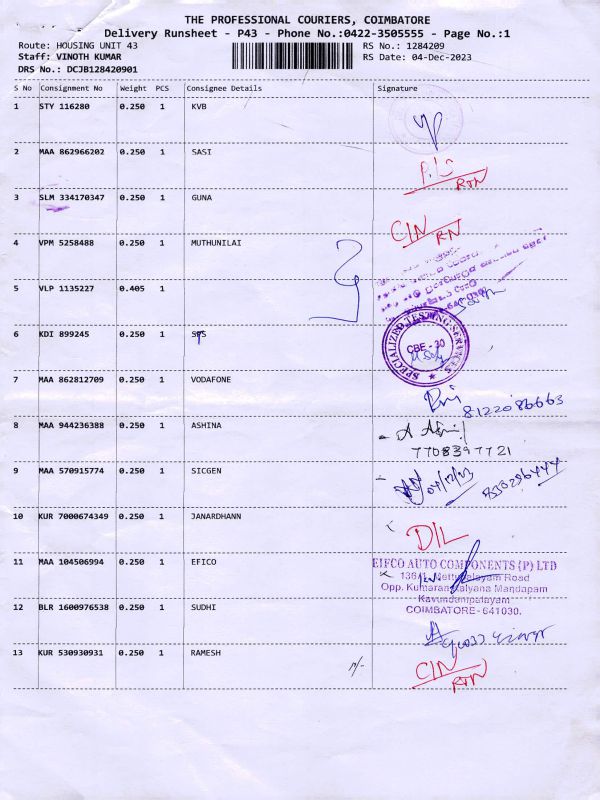 THE PROFESSIONAL COURIERS, COIMBATORE
Delivery Runsheet - P43 - Phone No.:0422-3505555 - Page No.:1
Route: HOUSING UNIT 43 RS No.: 1284209
Staff: VINOTH KUMAR RS Date: 04-Dec-2023
DRS No.: DCJB128420901
S No Consignment No Weight PCS Consignee Details Signature
1 STY 116280 0.250 1 KVB
2 MAA 862966202 0.250 1 SASI
RTN
3 SLM 334170347 0.250 1 GUNA
CIN
RN
4 VPM 5258488 0.250 1 MUTHUNILAI
5 VLP 1135227 0.405 1
6 KDI 899245 0.250 1 SPS
SPECIALIZED TESTING SERVICES
CBE - 30
7 MAA 862812709 0.250 1 VODAFONE
8122086663
8 MAA 944236388 0.250 1 ASHINA
7708397721
9 MAA 570915774 0.250 1 SICGEN
04/12/23
10 KUR 7000674349 0.250 1 JANARDHANN
D/L
11 MAA 104506994 0.250 1 EFICO
EIFCO AUTO COMPONENTS (P) LTD
136/1, Mettupalayam Road
Opp. Kumaran Kalyana Mandapam
Kavundampalayam
COIMBATORE - 641030.
12 BLR 1600976538 0.250 1 SUDHI
13 KUR 530930931 0.250 1 RAMESH
CIN
RTN